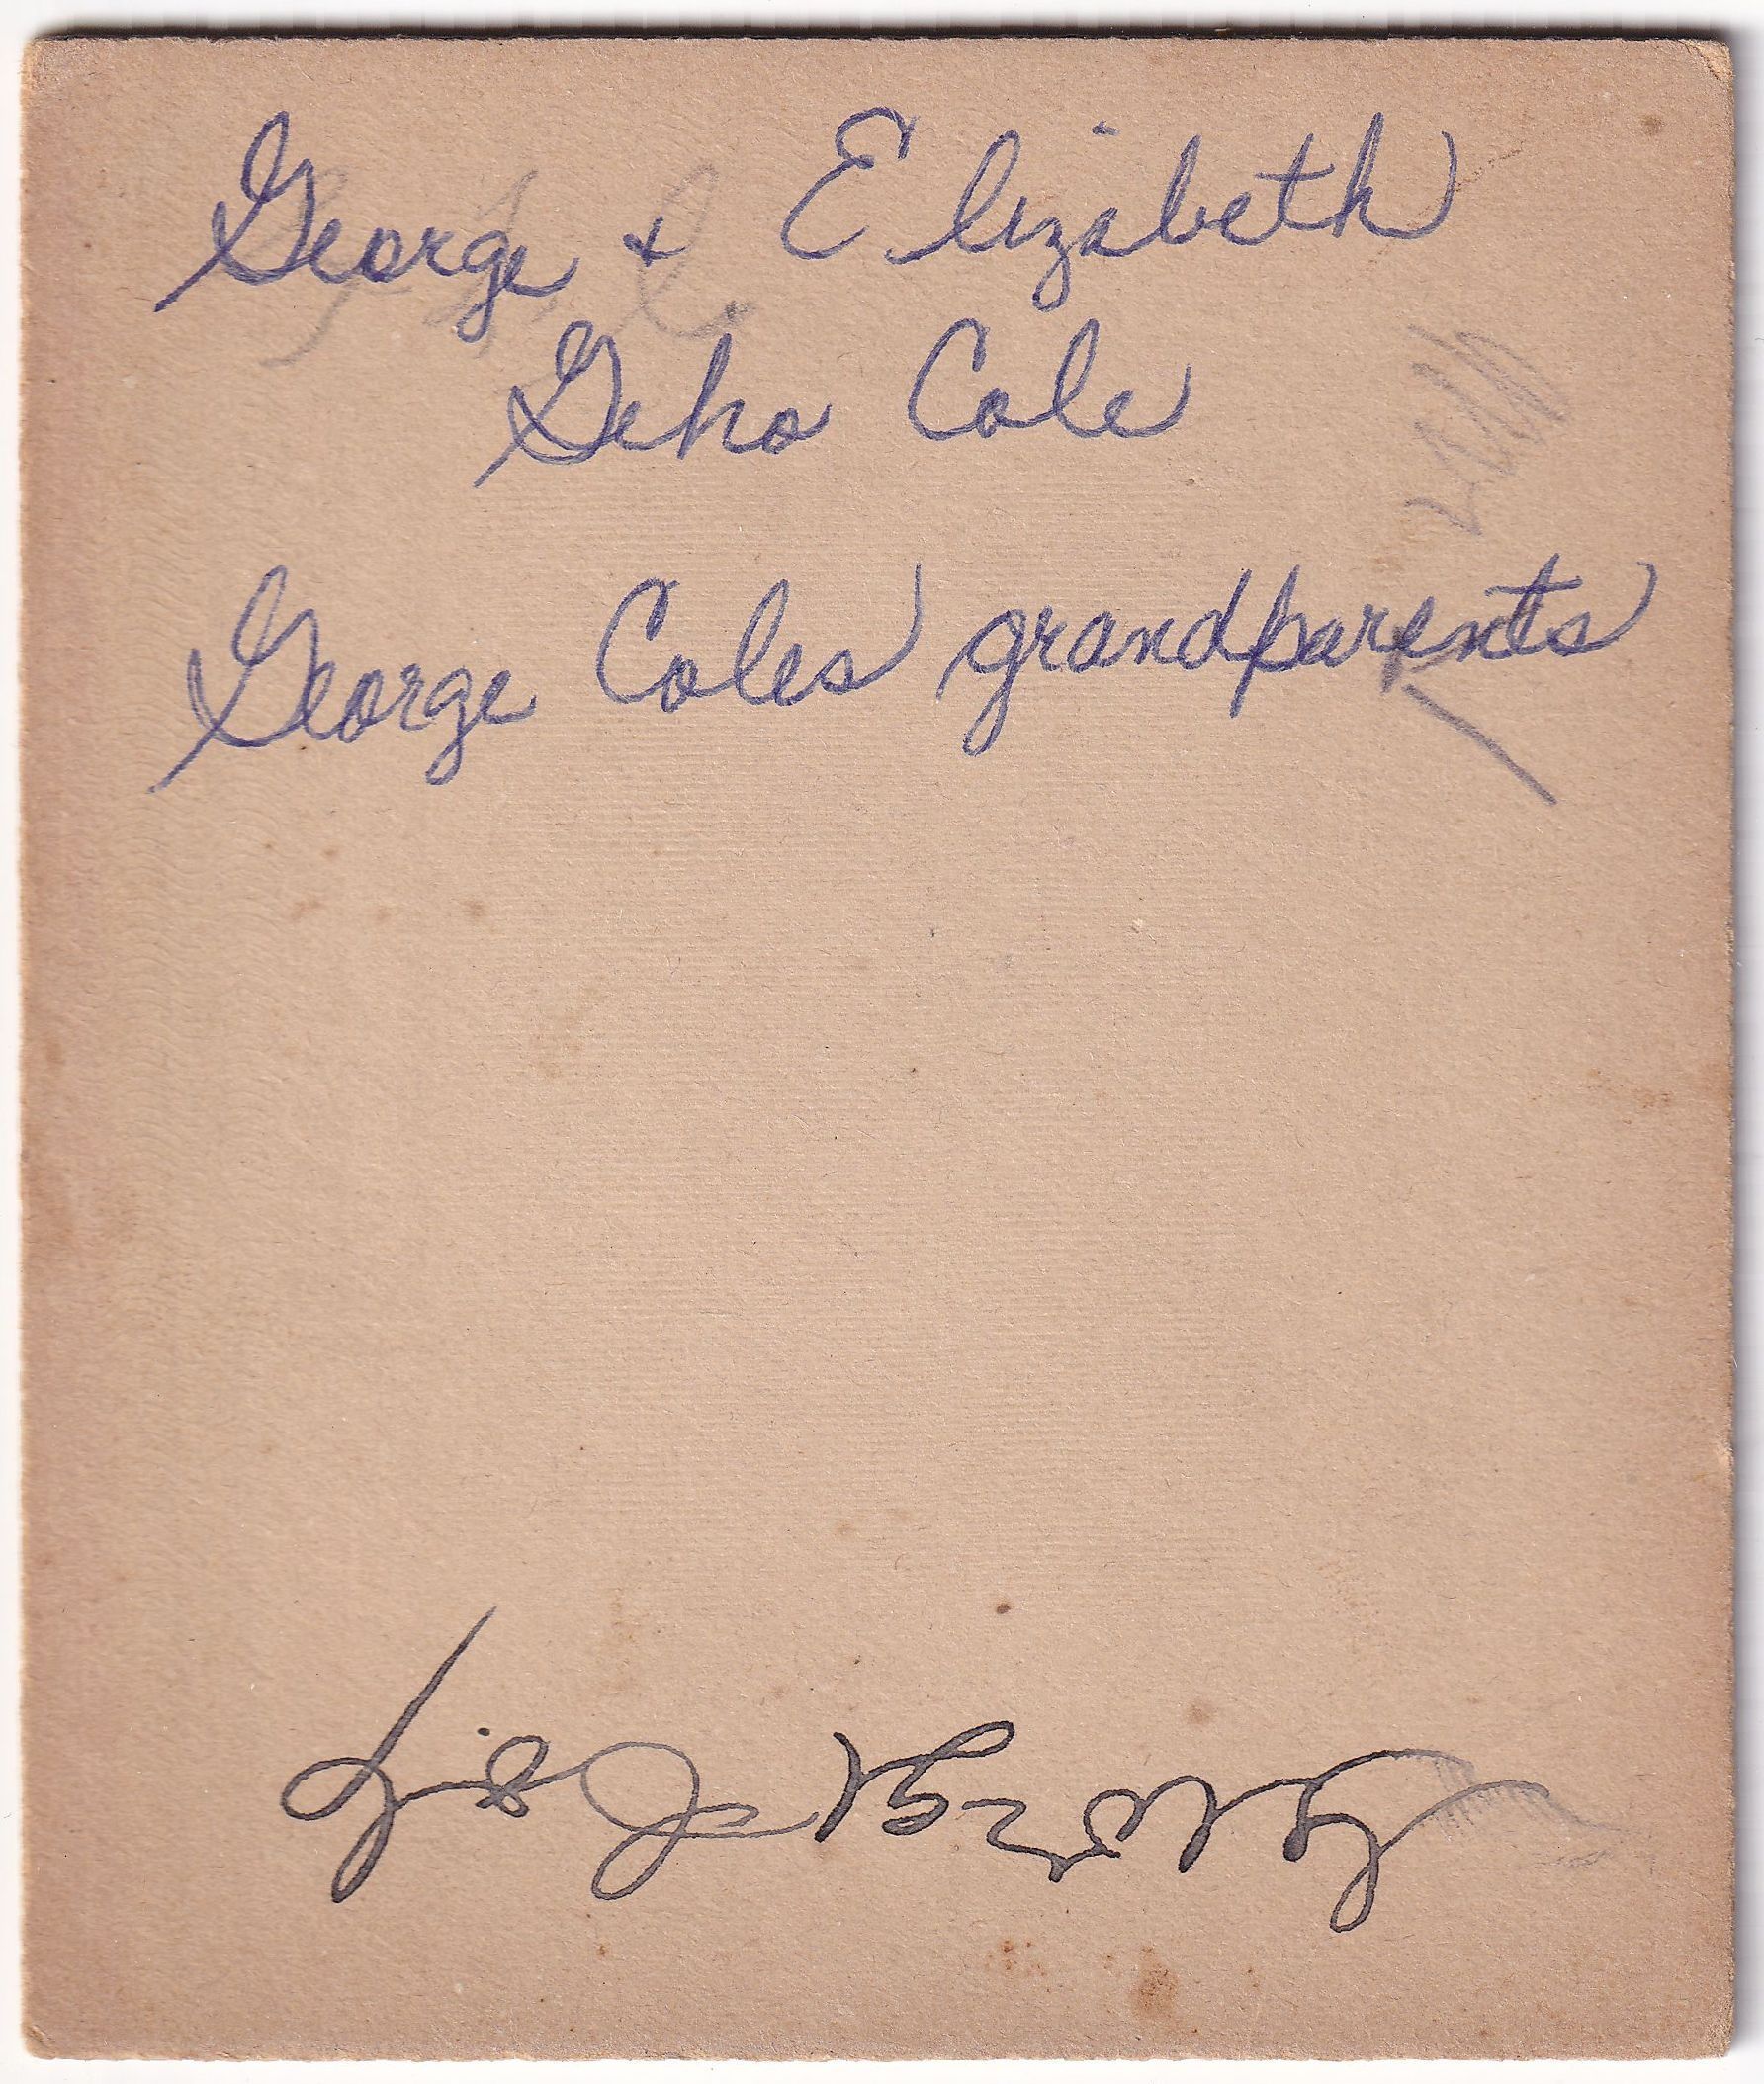 George + Elizabeth
Geho Cole
George Coles grandparents